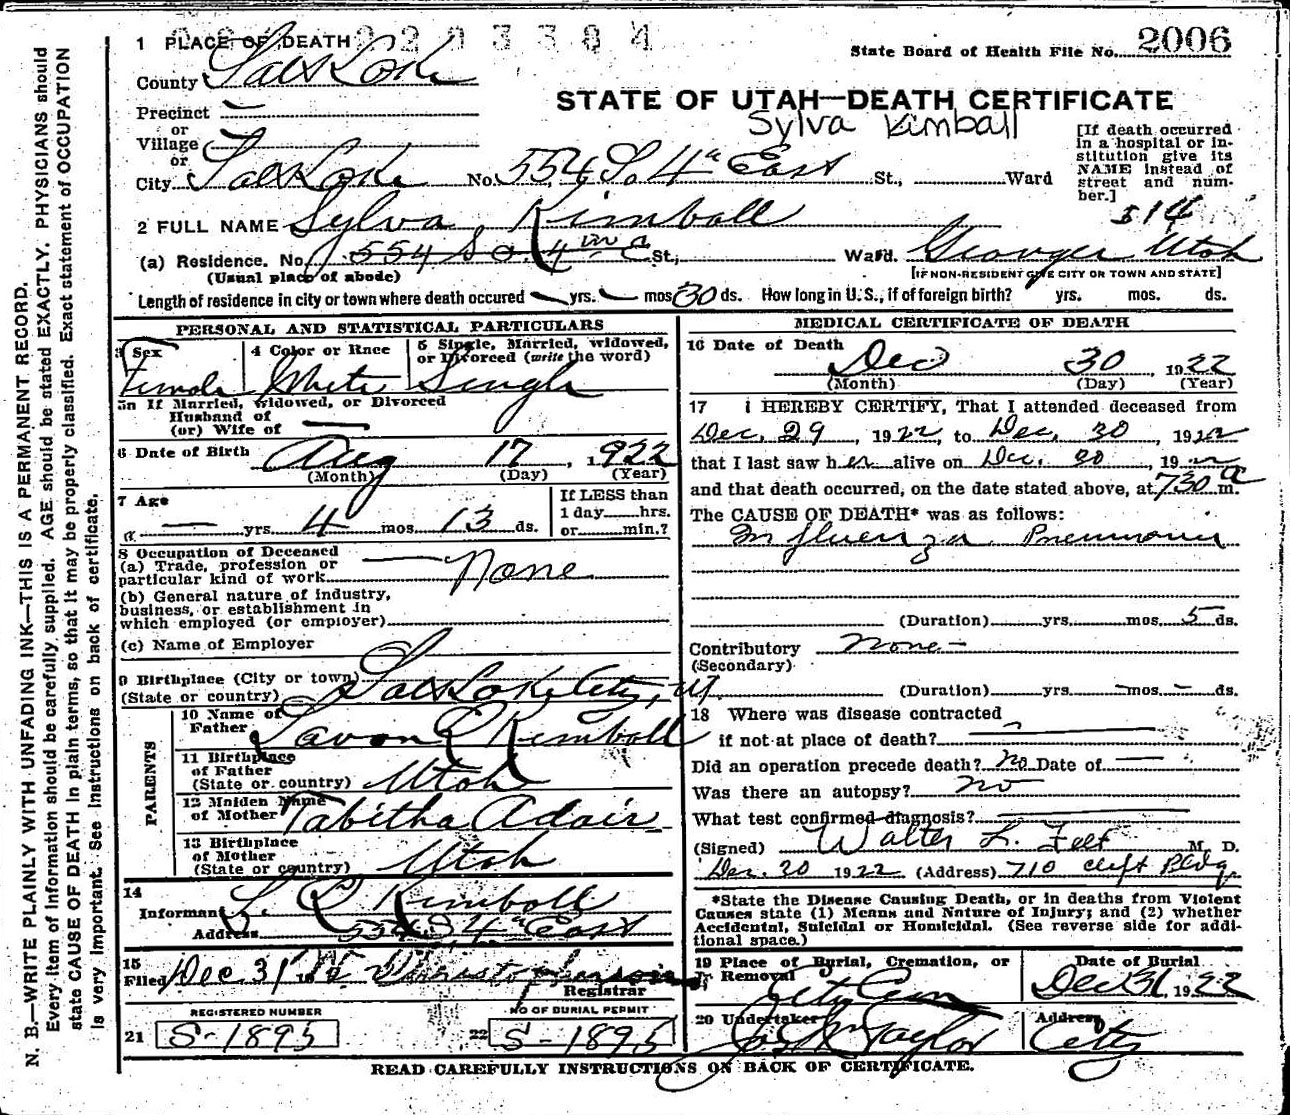 N. B.—WRITE PLAINLY WITH UNFADING INK—THIS IS A PERMANENT RECORD.
Every item of Information should be carefully supplied. AGE should be stated EXACTLY. PHYSICIANS should
state CAUSE OF DEATH in plain terms, so that it may be properly classified. Exact statement of OCCUPATION
is very important. See instructions on back of certificate.
1 PLACE OF DEATH
State Board of Health File No. 2006
County Salt Lake
STATE OF UTAH—DEATH CERTIFICATE
Sylva Kimball
Precinct —
or
Village —
or
City Salt Lake No. 554 So. 4th East St., Ward
[If death occurred in a hospital or institution give its NAME instead of street and number.]
2 FULL NAME Sylva Kimball
514
(a) Residence. No. 554 So. 4th St., Ward.
Utah
(Usual place of abode)
[IF NON-RESIDENT GIVE CITY OR TOWN AND STATE]
Length of residence in city or town where death occured — yrs. — mos 30 ds. How long in U. S., if of foreign birth? yrs. mos. ds.
PERSONAL AND STATISTICAL PARTICULARS
3 Sex
Female
4 Color or Race
White
5 Single, Married, widowed, or Divorced (write the word)
Single
5a If Married, widowed, or Divorced
Husband of
(or) Wife of —
6 Date of Birth Aug 17, 1922
(Month) (Day) (Year)
7 Age
— yrs. 4 mos. 13 ds.
If LESS than
1 day hrs.
or min.?
8 Occupation of Deceased
(a) Trade, profession or
particular kind of work None
(b) General nature of industry,
business, or establishment in
which employed (or employer)
(c) Name of Employer
9 Birthplace (City or town) Salt Lake City, Ut.
(State or country)
PARENTS
10 Name of
Father Lavon L Kimball
11 Birthplace
of Father
(State or country) Utah
12 Maiden Name
of Mother Tabitha Adair
13 Birthplace
of Mother
(State or country) Utah
14
Informant L. L Kimball
Address 554 S 4th East
15
Filed Dec 31
Registrar
REGISTERED NUMBER
21 S-1895
NO OF BURIAL PERMIT
22 S-1895
MEDICAL CERTIFICATE OF DEATH
16 Date of Death
Dec 30 1922
(Month) (Day) (Year)
17 I HEREBY CERTIFY, That I attended deceased from
Dec. 29, 1922, to Dec. 30, 1922
that I last saw her alive on Dec. 30, 1922
and that death occurred, on the date stated above, at 730 a m.
The CAUSE OF DEATH* was as follows:
Influenza Pneumonia
(Duration) yrs. mos. 5 ds.
Contributory None —
(Secondary)
(Duration) yrs. — mos. — ds.
18 Where was disease contracted
if not at place of death? —
Did an operation precede death? no Date of —
Was there an autopsy? no
What test confirmed diagnosis?
(Signed) Walter L. Felt M. D.
Dec. 30 1922 (Address) 710 Clift Bldg.
*State the Disease Causing Death, or in deaths from Violent
Causes state (1) Means and Nature of Injury; and (2) whether
Accidental, Suicidal or Homicidal. (See reverse side for addi-
tional space.)
19 Place of Burial, Cremation, or
Removal
City Cem
Date of Burial
Dec 31, 1922
20 Undertaker
Jos Wm Taylor
Address
City
READ CAREFULLY INSTRUCTIONS ON BACK OF CERTIFICATE.